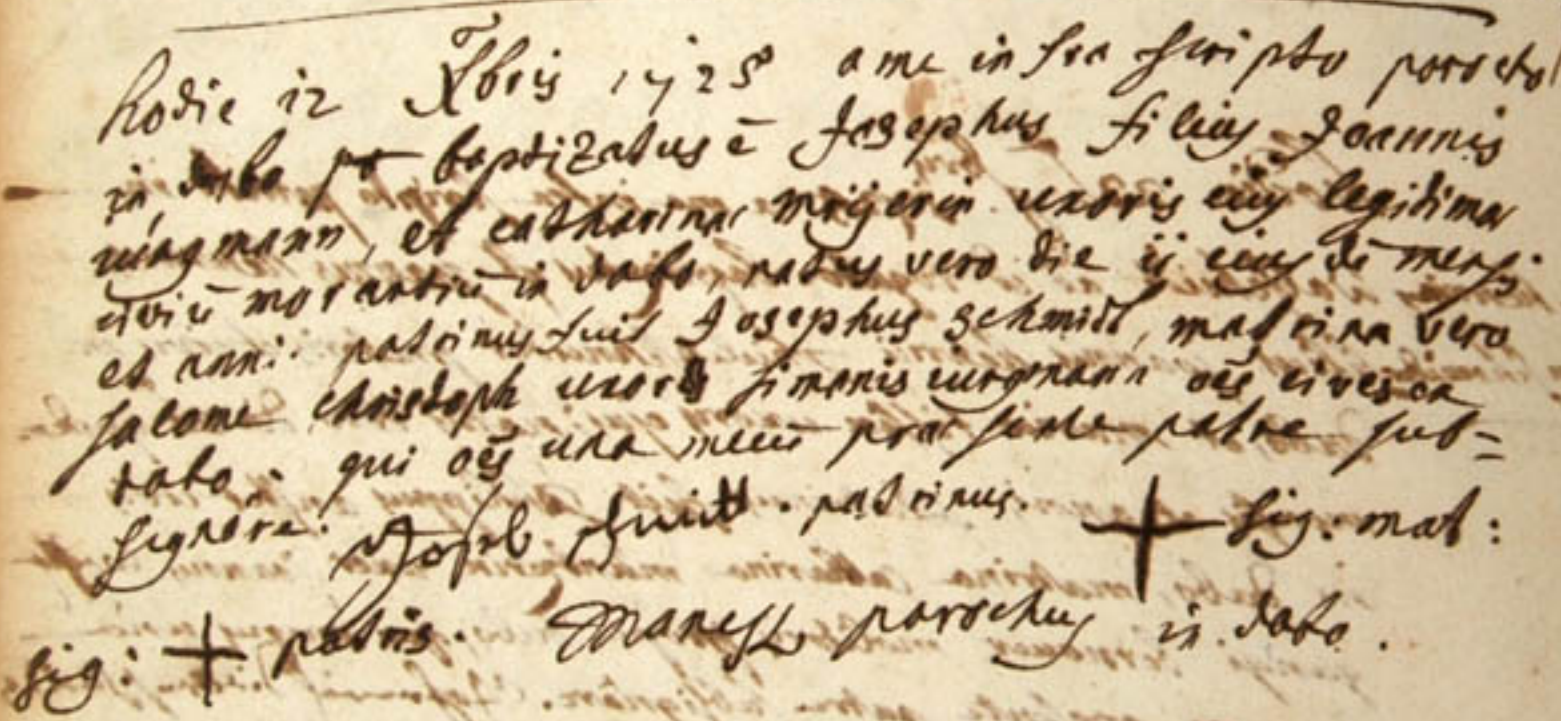 hodie 12 Xbris 1725 a me infra scripto parocho
in dabo baptizatus ē Josephus filius Joannis
jungmann, et catharinae meijerin uxoris eius legitimae
civiū morantiū in dabo, natus vero die 11 eiusdē mens.
et anni. patrinus fuit Josephus schmidt, matrina vero
salome christoph uxor simonis jungmann oēs cives ex
dabo. qui oēs una mecū praesente patre sub=
signare. Joseb schmitt. patrinus. + sig: mat:
sig: + patris. parochus in dabo.